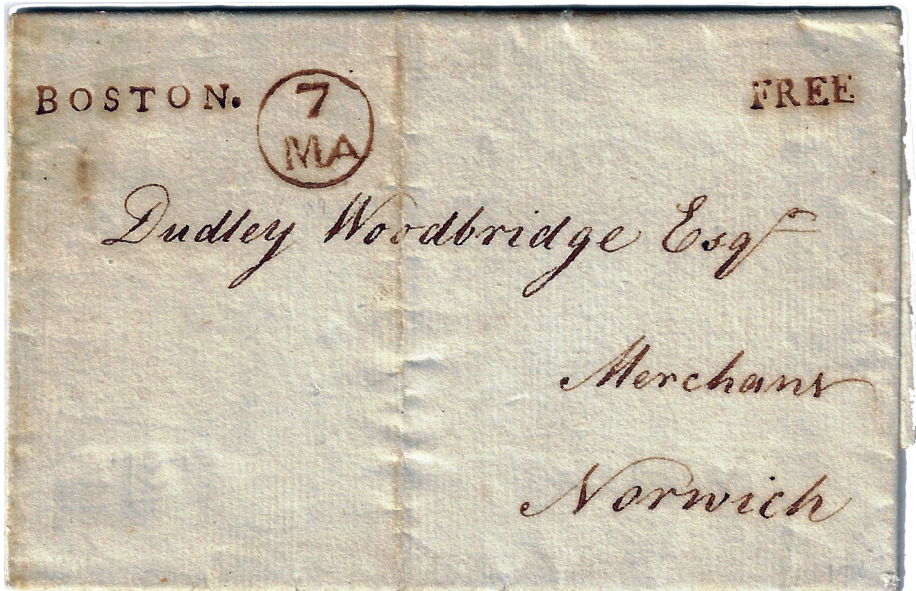 BOSTON. 7 MA FREE
Dudley Woodbridge Esqr
Merchant
Norwich